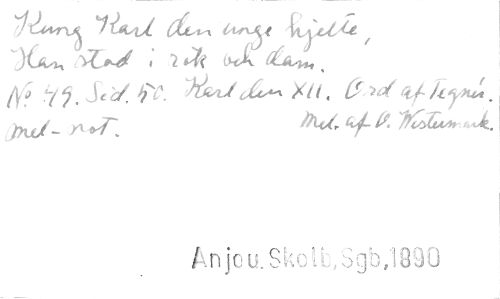 Kung Karl den unge hjelte,
Han stod i rök och dam.
No 49. Sid. 50. Karl den XII. Ord af Tegnér.
mel-not. Mel. af O. Westermark.
Anjou. Skolb, Sgb, 1890